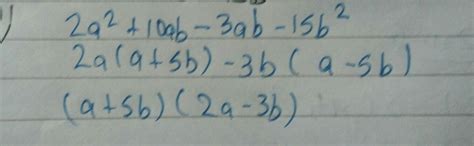 2a² + 10ab - 3ab - 15b²
2a(a + 5b) - 3b(a - 5b)
(a + 5b)(2a - 3b)